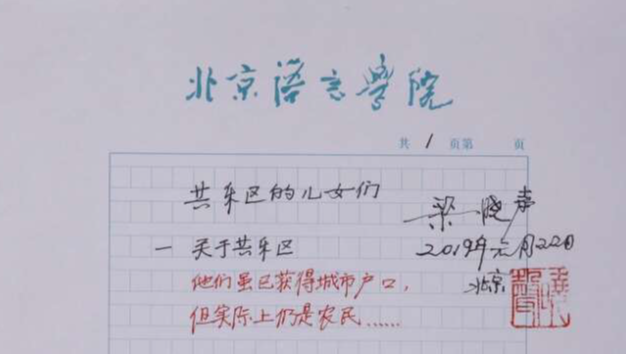 北京语言学院
共 1 页第 页
共乐区的儿女们
梁晓声
一 关于共乐区
2019年元月22日
他们虽已获得城市户口，
北京
但实际上仍是农民……